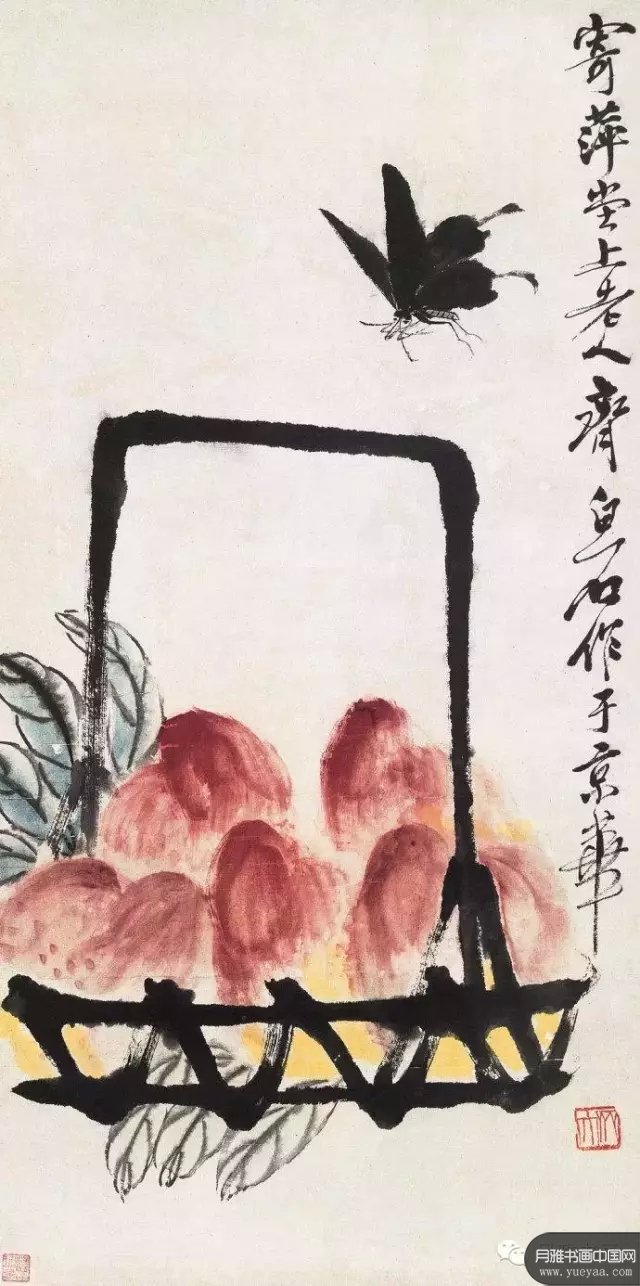 寄萍堂上老人齊白石作于京華
月雅书画中国网
www.yueyaa.com